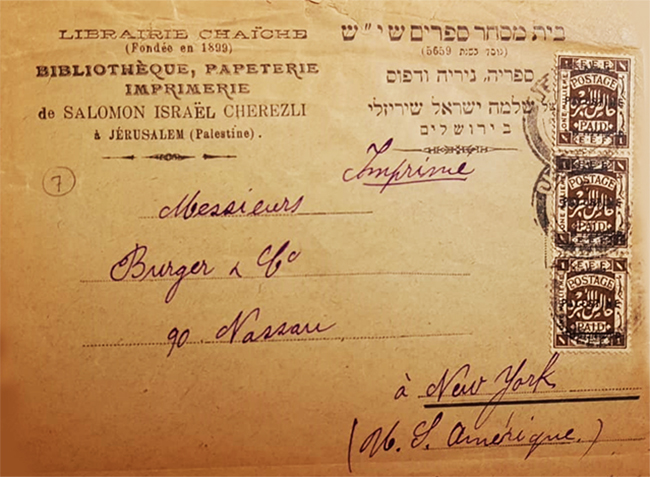 LIBRAIRIE CHAÏCHE
(Fondée en 1899)
BIBLIOTHÈQUE, PAPETERIE
IMPRIMERIE
de SALOMON ISRAËL CHEREZLI
à JÉRUSALEM (Palestine).
בית מסחר ספרים שי״ש
(נוסד בשנת 5659)
ספריה, ניריה ודפוס
שלמה ישראל שיריזלי
בירושלים
7
Imprimé
Messieurs
Burger & Co
90 Nassau
à New York
(U. S. Amérique.)
E.E.F.
POSTAGE
ONE MILLIEME
PALESTINE
PAID
E.E.F.
E.E.F.
POSTAGE
ONE MILLIEME
PALESTINE
PAID
E.E.F.
E.E.F.
POSTAGE
PALESTINE
PAID